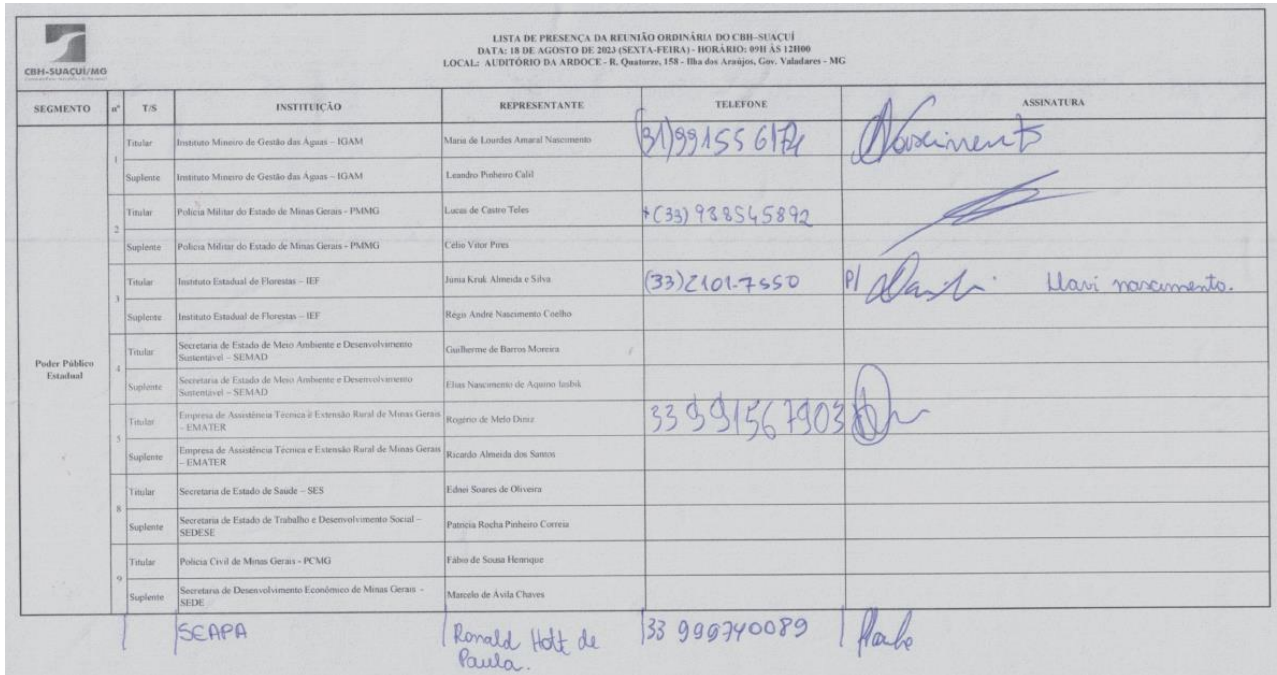 CBH-SUAÇUÍ/MG
LISTA DE PRESENÇA DA REUNIÃO ORDINÁRIA DO CBH-SUAÇUÍ
DATA: 18 DE AGOSTO DE 2023 (SEXTA-FEIRA) - HORÁRIO: 09H ÀS 12H00
LOCAL: AUDITÓRIO DA ARDOCE - R. Quatorze, 158 - Ilha dos Araújos, Gov. Valadares - MG
SEGMENTO nº T/S INSTITUIÇÃO REPRESENTANTE TELEFONE ASSINATURA
Poder Público
Estadual
1
Titular Instituto Mineiro de Gestão das Águas – IGAM Maria de Lourdes Amaral Nascimento (31) Nascimento
Suplente Instituto Mineiro de Gestão das Águas – IGAM Leandro Pinheiro Calil
2
Titular Polícia Militar do Estado de Minas Gerais - PMMG Lucas de Castro Teles (33) 988545892
Suplente Polícia Militar do Estado de Minas Gerais - PMMG Célio Vitor Pires
3
Titular Instituto Estadual de Florestas – IEF Kruk Almeida e Silva (33)2101-7550 P/ nascimento.
Suplente Instituto Estadual de Florestas – IEF André Nascimento Coelho
4
Titular Secretaria de Estado de Meio Ambiente e Desenvolvimento
Sustentável – SEMAD Guilherme de Barros Moreira
Suplente Secretaria de Estado de Meio Ambiente e Desenvolvimento
Sustentável – SEMAD Elias Nascimento de Aquino
5
Titular Empresa de Assistência Técnica e Extensão Rural de Minas Gerais
– EMATER Rogério de Melo Diniz 33 991567903
Suplente Empresa de Assistência Técnica e Extensão Rural de Minas Gerais
– EMATER Ricardo Almeida dos Santos
8
Titular Secretaria de Estado de Saúde – SES Ednei Soares de Oliveira
Suplente Secretaria de Estado de Trabalho e Desenvolvimento Social –
SEDESE Patrícia Rocha Pinheiro Correia
9
Titular Polícia Civil de Minas Gerais - PCMG Fábio de Sousa Henrique
Suplente Secretaria de Desenvolvimento Econômico de Minas Gerais -
SEDE Marcelo de Ávila Chaves
SEAPA Ronald Hott de 33 999740089
Paula.